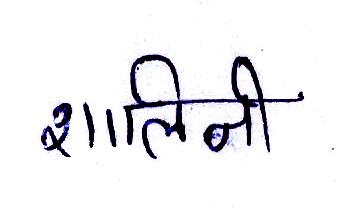 शालिनी